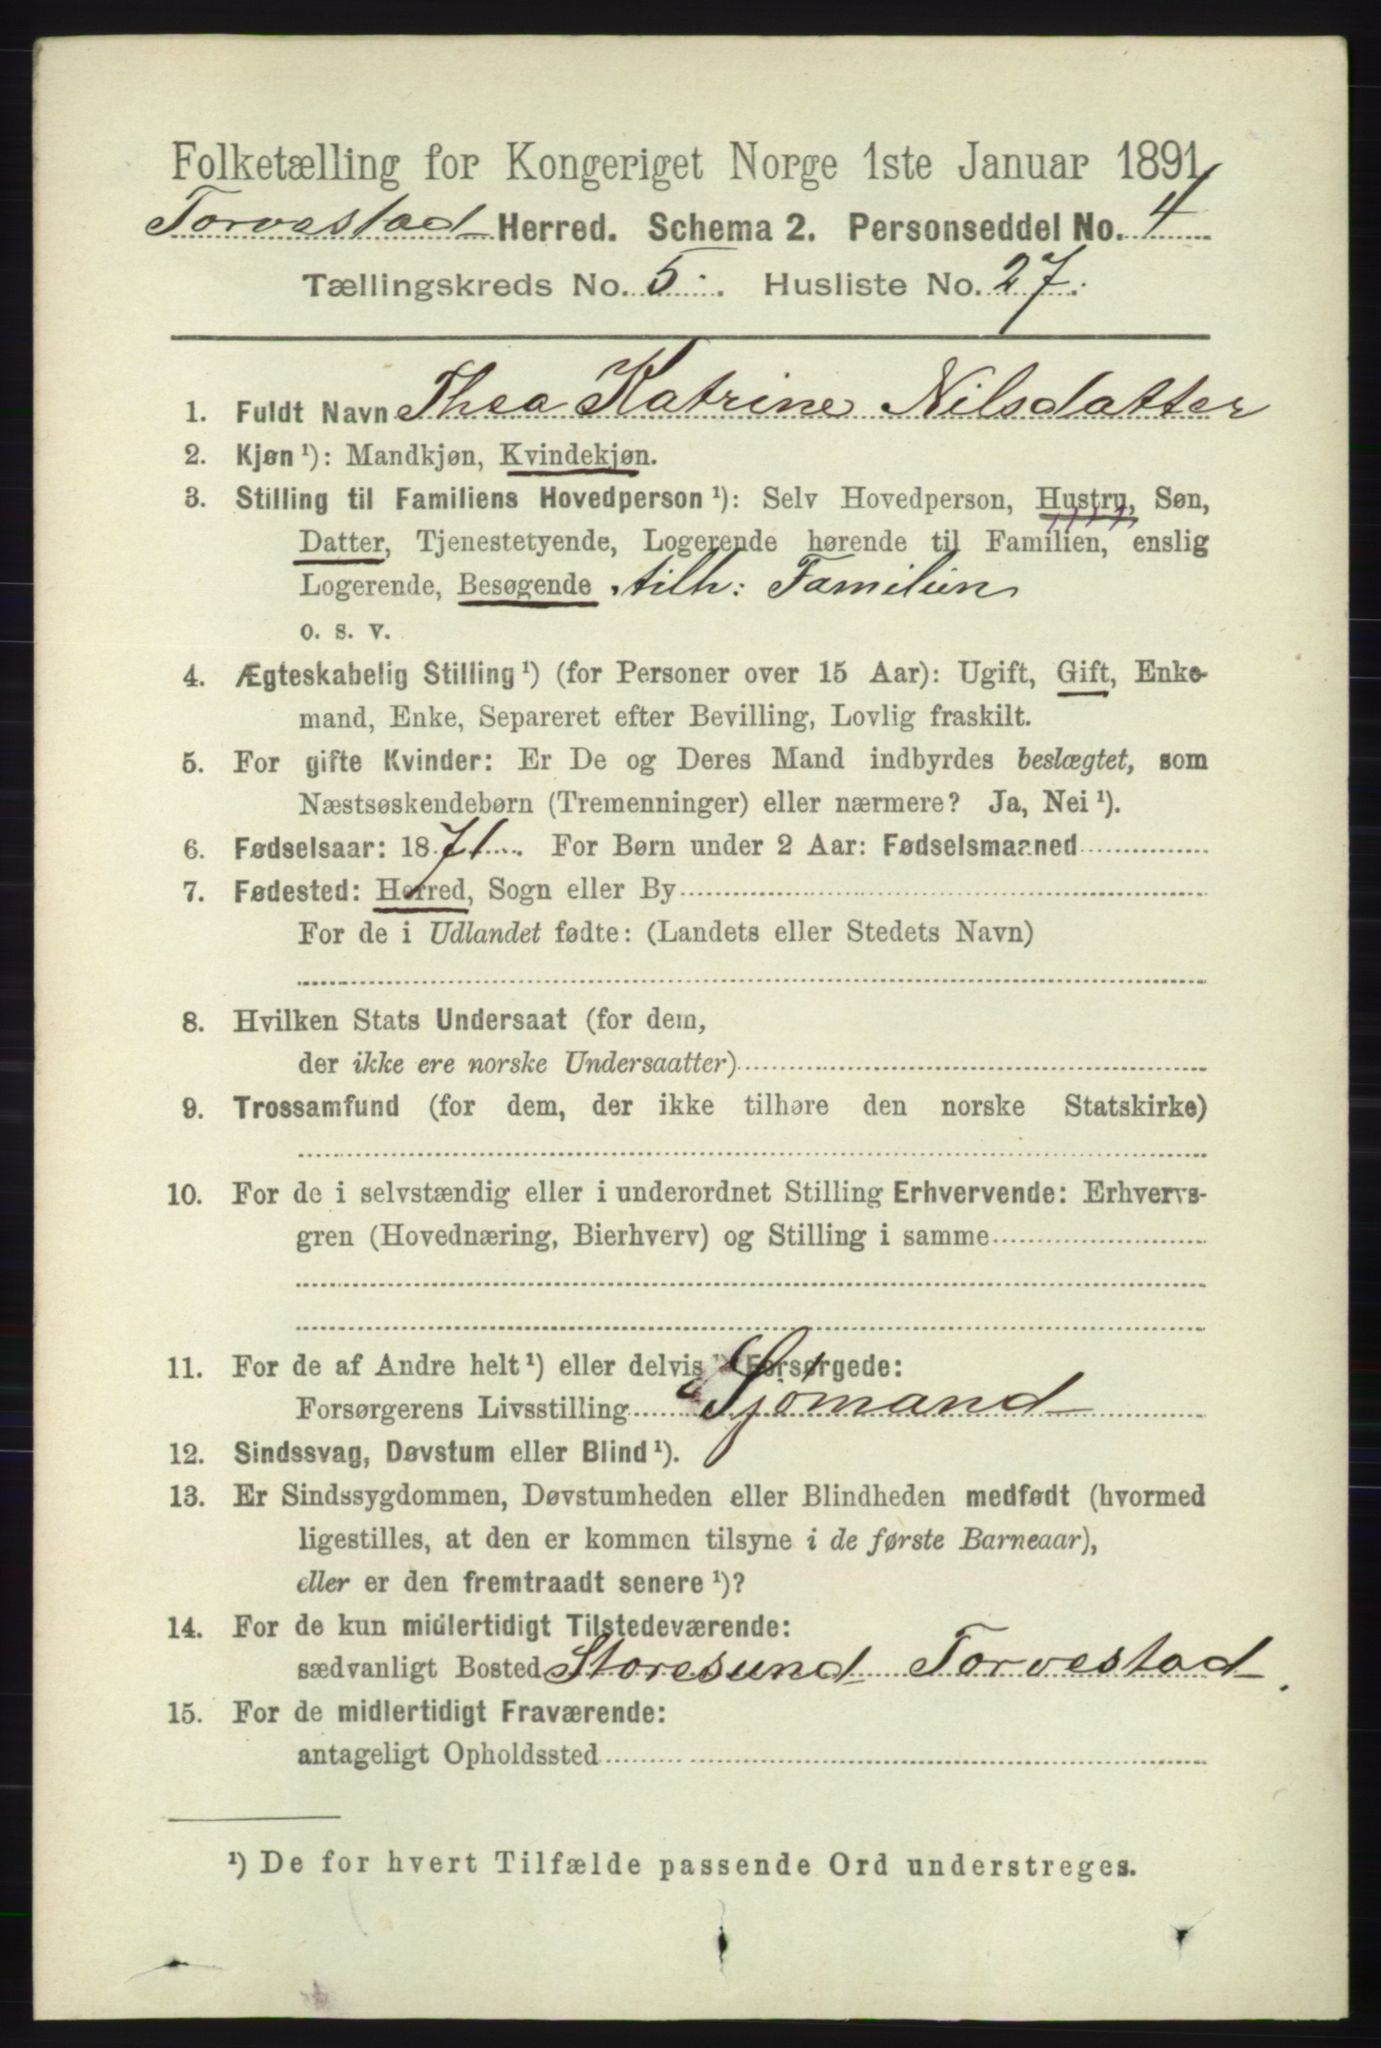 Folketælling for Kongeriget Norge 1ste Januar 1891.
Torvestad Herred. Schema 2. Personseddel No. 4
Tællingskreds No. 5. Husliste No. 27.
1. Fuldt Navn Thea Katrine Nilsdatter
2. Kjøn ¹): Mandkjøn, Kvindekjøn.
3. Stilling til Familiens Hovedperson ¹): Selv Hovedperson, Hustru, Søn,
Datter, Tjenestetyende, Logerende hørende til Familien, enslig
Logerende, Besøgende tilh: Familien
o. s. v.
4. Ægteskabelig Stilling ¹) (for Personer over 15 Aar): Ugift, Gift, Enke-
mand, Enke, Separeret efter Bevilling, Lovlig fraskilt.
5. For gifte Kvinder: Er De og Deres Mand indbyrdes beslægtet, som
Næstsøskendebørn (Tremenninger) eller nærmere? Ja, Nei ¹).
6. Fødselsaar: 1871. For Børn under 2 Aar: Fødselsmaaned
7. Fødested: Herred, Sogn eller By
For de i Udlandet fødte: (Landets eller Stedets Navn)
8. Hvilken Stats Undersaat (for dem,
der ikke ere norske Undersaatter)
9. Trossamfund (for dem, der ikke tilhøre den norske Statskirke)
10. For de i selvstændig eller i underordnet Stilling Erhvervende: Erhvervs-
gren (Hovednæring, Bierhverv) og Stilling i samme
11. For de af Andre helt ¹) eller delvis ¹) Forsørgede:
Forsørgerens Livsstilling Sjömand
12. Sindssvag, Døvstum eller Blind ¹).
13. Er Sindssygdommen, Døvstumheden eller Blindheden medfødt (hvormed
ligestilles, at den er kommen tilsyne i de første Barneaar),
eller er den fremtraadt senere ¹)?
14. For de kun midlertidigt Tilstedeværende:
sædvanligt Bosted Storesund Torvestad.
15. For de midlertidigt Fraværende:
antageligt Opholdssted
¹) De for hvert Tilfælde passende Ord understreges.